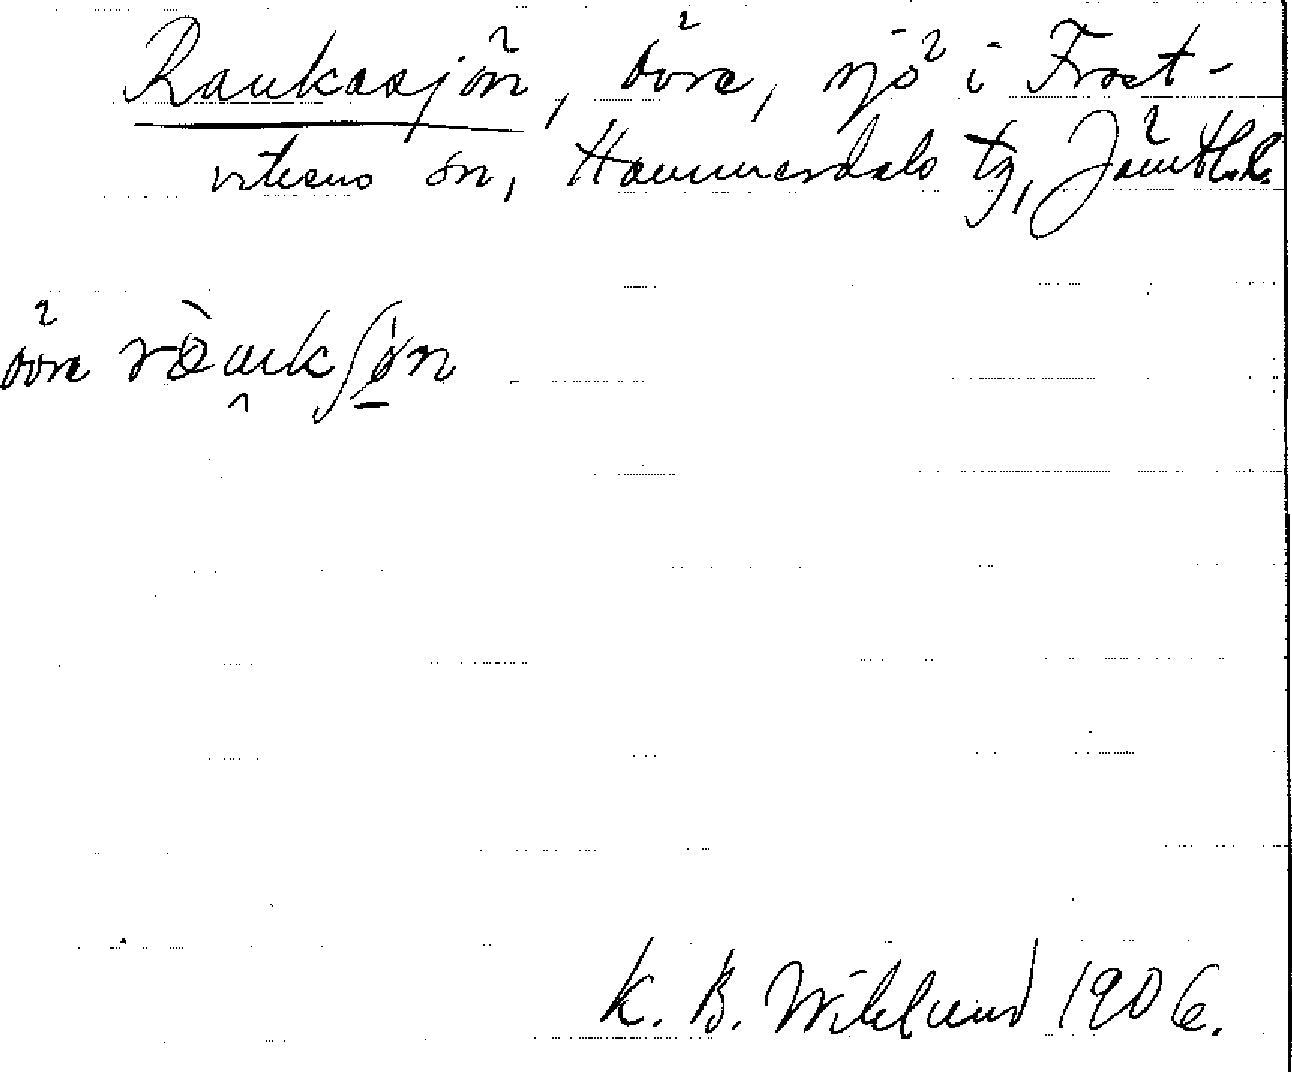 Raukasjön, övre, sjö i Frost-
vikens sn, Hammerdals tg, Jämtl.l.
övre ræukʃøn
K. B. Wiklund 1906.